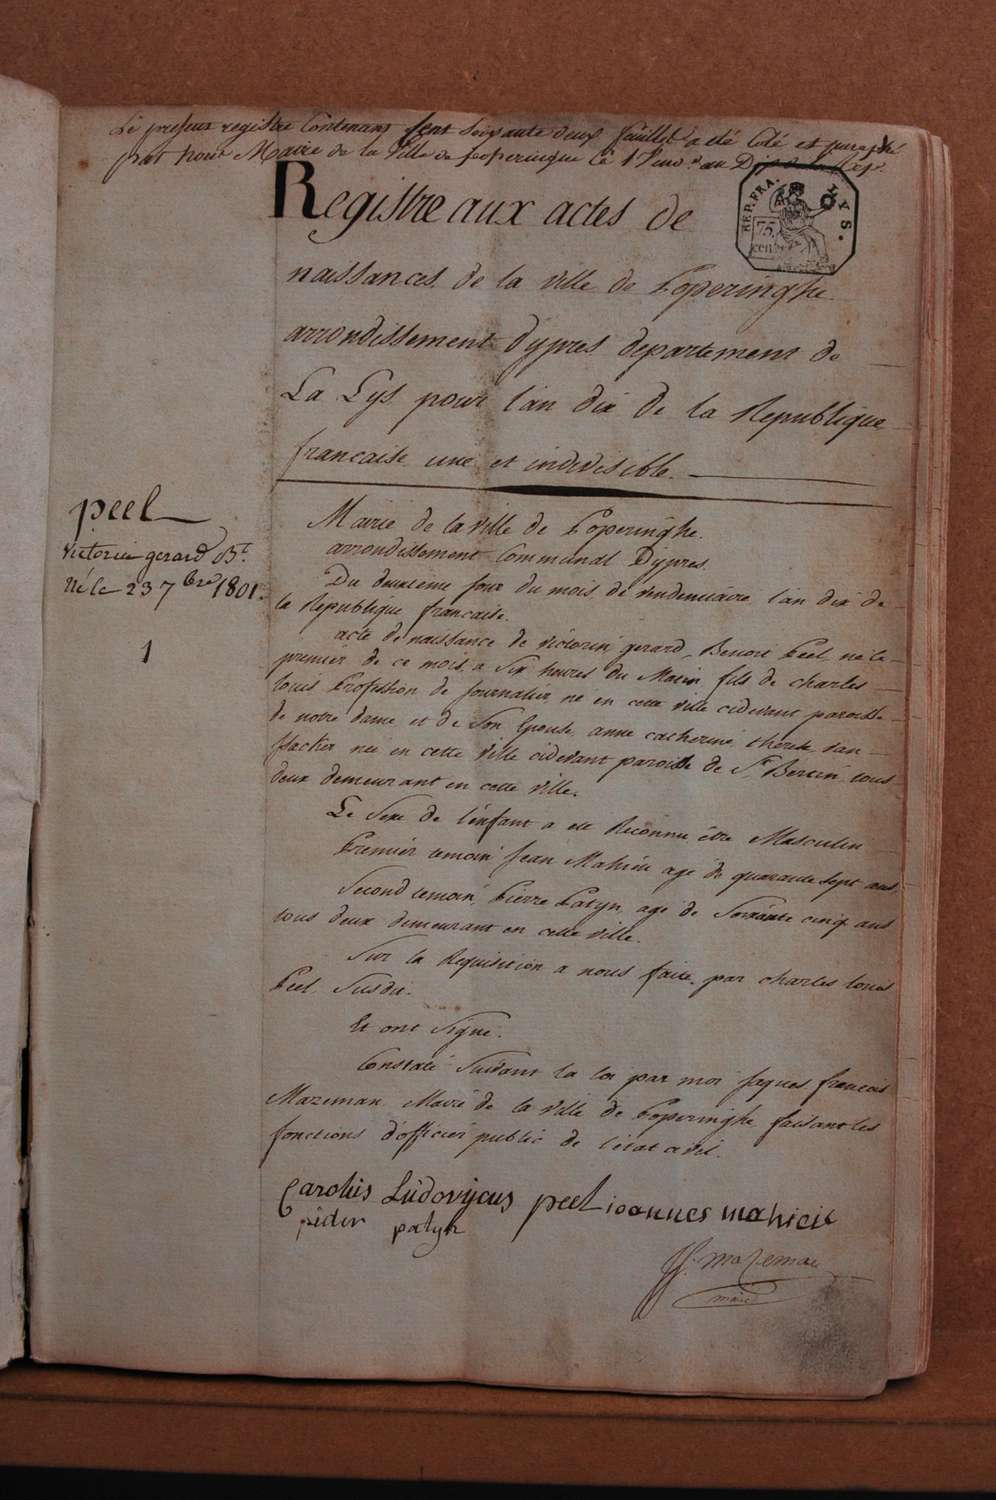 Le present registre Contenant Cent Soixante deux feuillets a été Coté et paraphé
par nous Maire de la Ville de poperingue le 1 Vend.re an Dix de la Rep.
Registre aux actes de
naissances de la ville de Poperinghe
arrondissement dypres departement de
La Lys pour l'an dix de la Republique
francaise une et indivisible.
REP. FRA.
LYS.
75
cent
peel
victorin gerard Bt.
né le 23 7bre 1801.
1
Mairie de la ville de Poperinghe
arrondissement Communal Dypres.
Du deuxieme jour du mois de vendemiaire l'an dix de
la Republique francaise.
acte de naissance de victorin gerard Benoit Peel né le
premier de ce mois a Six heures du Matin, fils de charles
louis Profession de Journalier né en cette ville cidevant paroisse
de notre dame et de Son Epouse anne catherine therese van
packer née en cette ville cidevant paroisse de St. Bertin tous
deux demeurant en cette ville.
Le Sexe de l'enfant a été Reconnu être Masculin
Premier temoin Jean Mahieu agé de quarante sept ans
Second temoin Pierre Patyn agé de Soixante cinq ans
tous deux demeurant en cette ville.
Sur la Requisition a nous faite par charles louis
Peel Susdit.
Et ont Signé.
Constaté Suivant la loi par moi jaques francois
Mazeman Maire de la ville de Poperinghe faisant les
fonctions d'officier public de l'etat civil.
Carolus Ludovijcus peel ioannes mahieu
pieter patyn
JF. Mazeman
maire